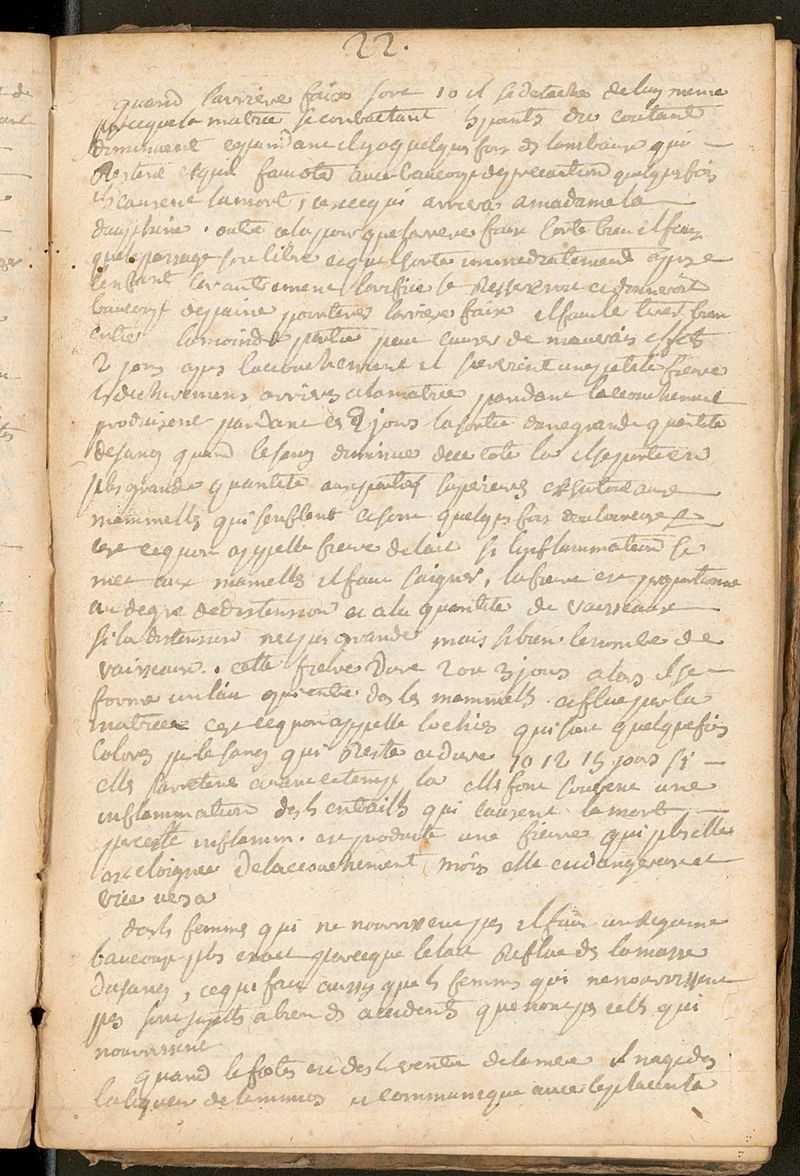 22.
quand larriere faix sort 10 il se detache de luy meme
parceque la matrice se contractant
diminuent cependant il y a quelques fois des lambeaux qui
Restent et quil faut oter avec beaucoup de precaution quelques fois
ils causent la mort, cest ce qui arriva a madame la
dauphine. outre cela pour que larriere faix sorte bien il faut
que le passage soit libre et quil sorte immediatement apres
lenfant autrement lorifice se Resserreroit et donneroit
beaucoup de peine pour tirer larriere faix il faut le tirer bien
entier la moindre partie peut causer de mauvais effets
2 jours apres laccouchement il survient une petite fievre
les dechiremens arrives a la matrice pendant laccouchement
produisent pendant ces 2 jours la sortie dune grande quantite
de sang quand le sang diminue de ce cote la il se porte en
plus grande quantite aux parties superieures et surtout aux
mammelles qui senflent et sont quelques fois douloureuses
cest ce quon appelle fievre de lait si linflammation se
met aux mamelles il faut saigner, la fievre est proportionnée
au degre de distension et a la quantite de vaisseaux
si la distension nest pas grande mais si bien le nombre de
vaisseaux. cette fievre dure 2 ou 3 jours alors il se
forme un lait qui entre ds les mammelles. et flue par la
matrice cest ce quon appelle lochies qui sont quelquefois
colorés par le sang qui Reste et dure 10 12 15 jours si
elles sarretent avant ce temps la elles font souvent une
inflammation des entrailles qui causent la mort
par cette inflamm. est produite une fievre qui plus elle
est eloignée de laccouchement moins elle est dangereuse et
vice versa
ds les femmes qui ne nourrissent pas il faut un regime
beaucoup plus exact parceque le lait Reflue ds la masse
du sang, ce qui fait aussy que les femmes qui ne nourrissent
pas sont sujettes a bien des accidents que nont pas celles qui
nourrissent
quand le foetus est ds le ventre de la mere il nage ds
la liqueur de lamnios et communique avec le placenta